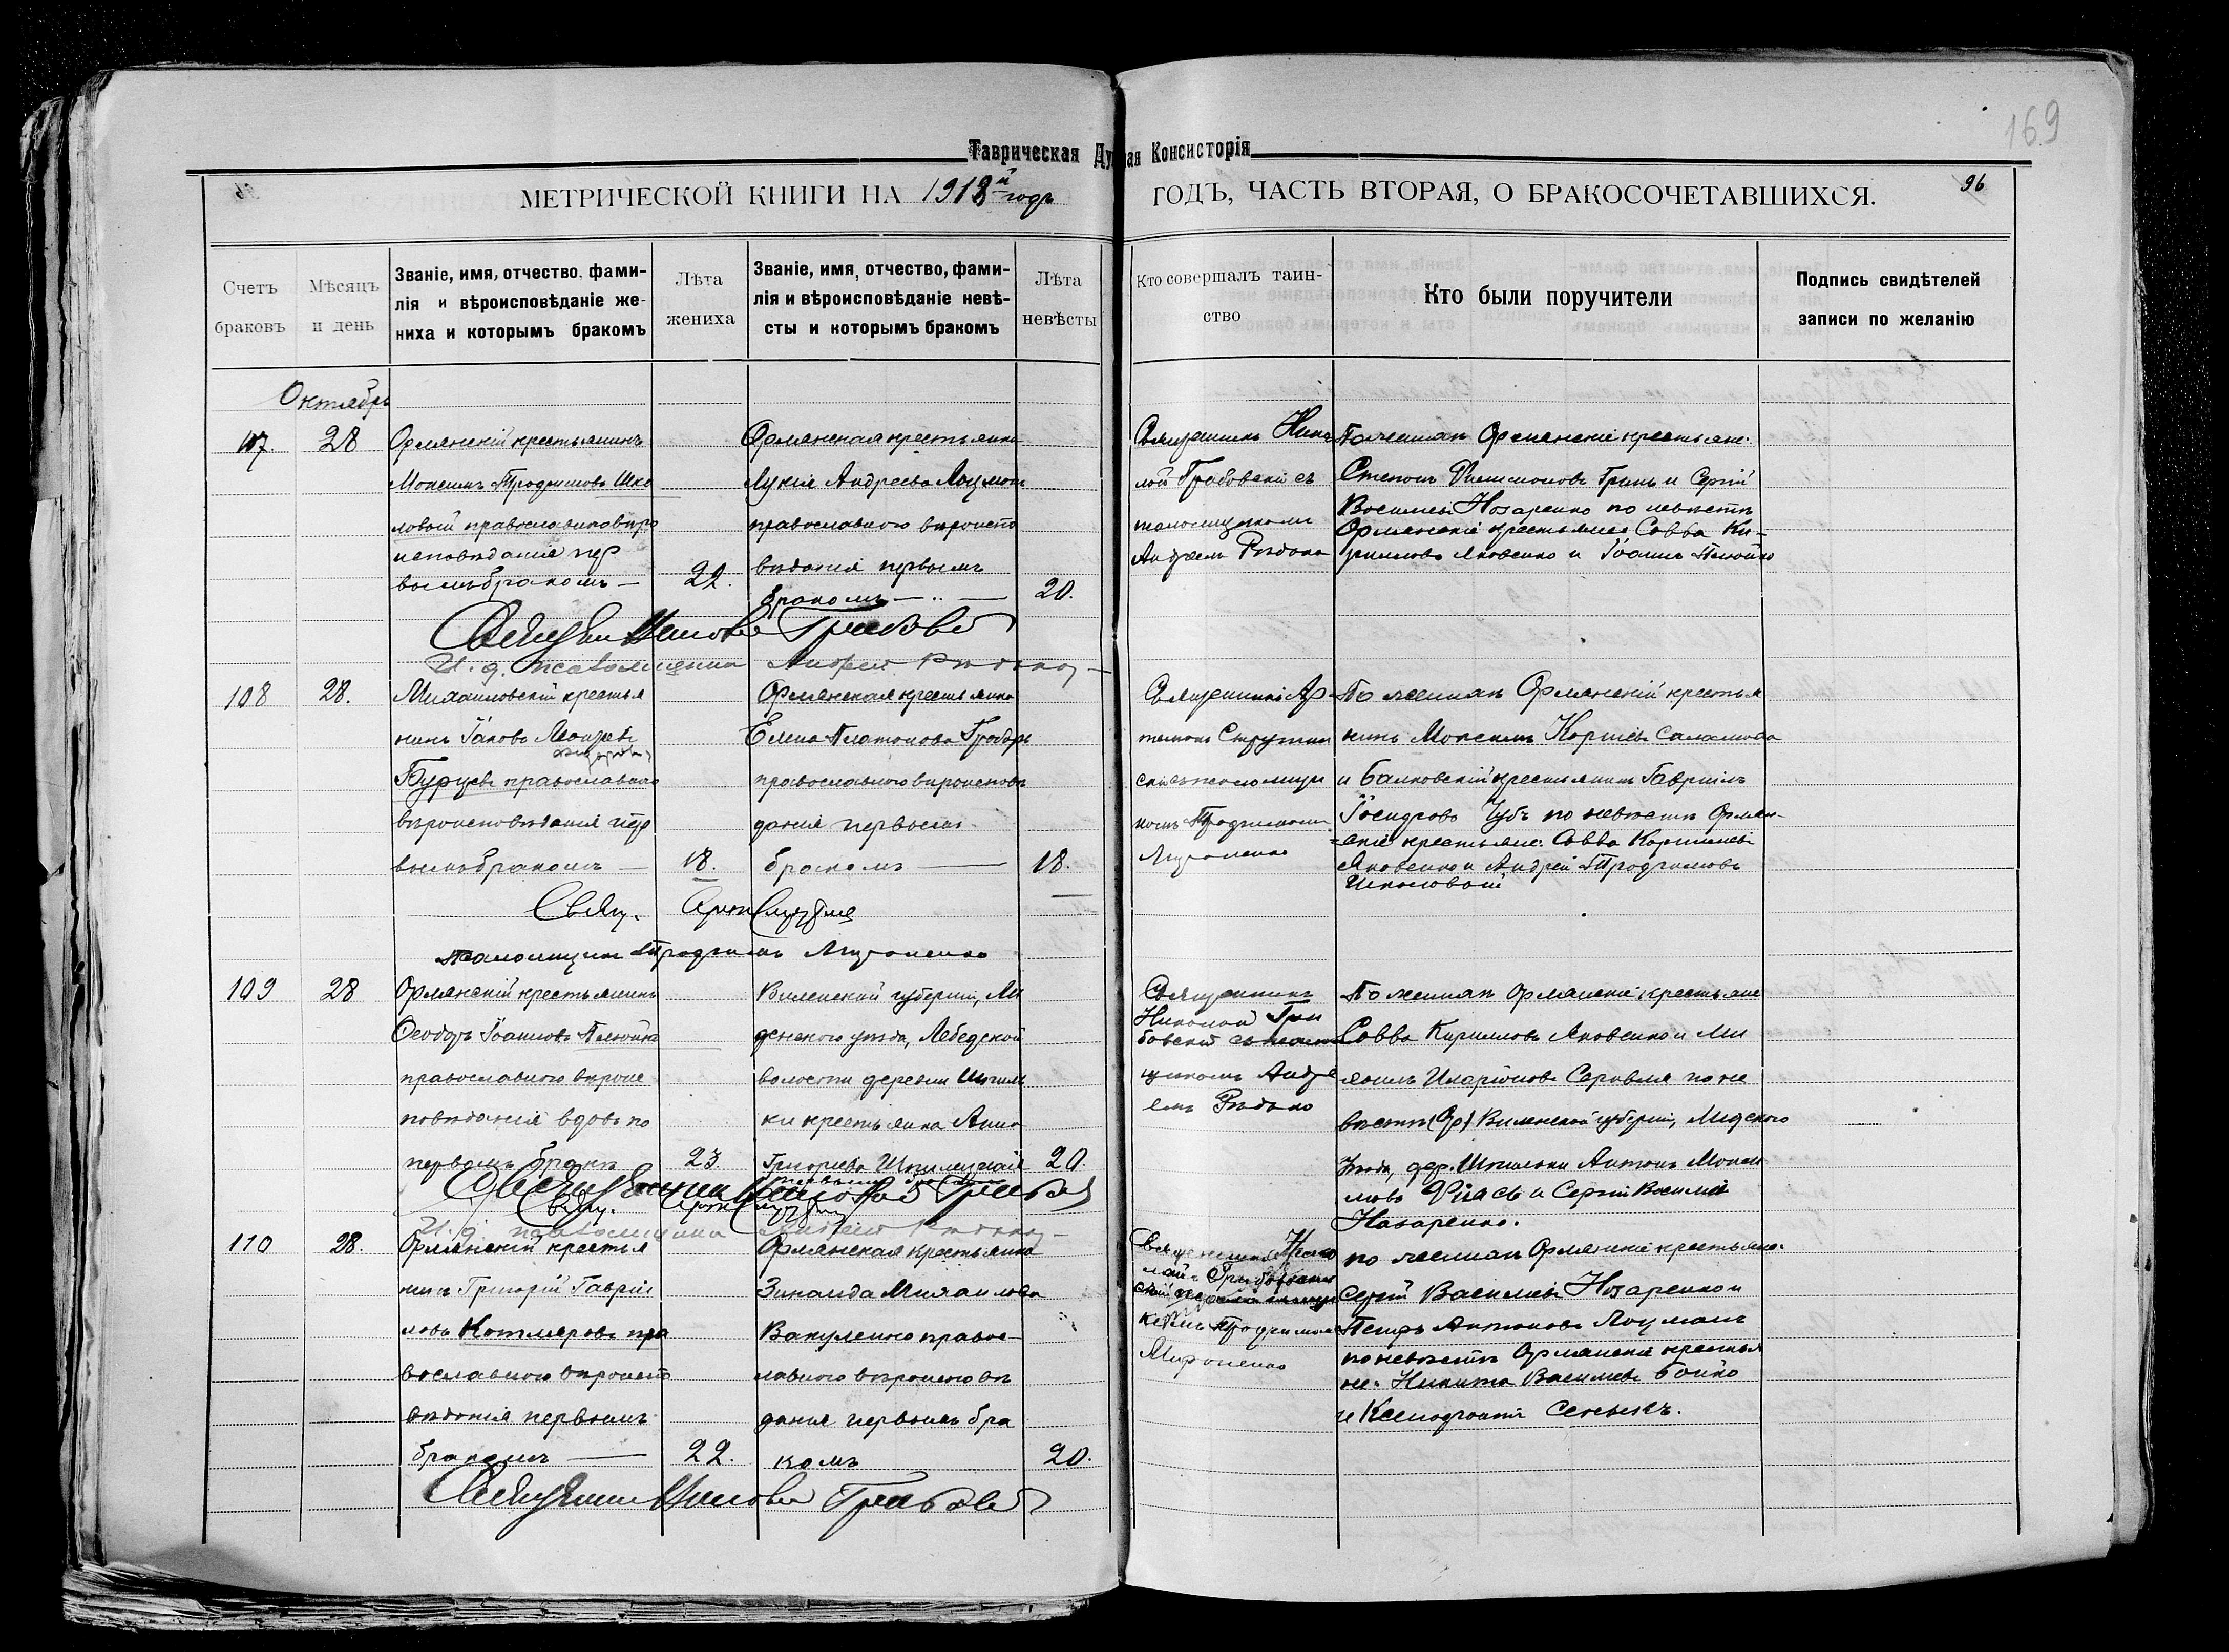 169
Таврическая Ду ная Консисторія
96
МЕТРИЧЕСКОЙ КНИГИ НА 1918й годъ ГОДЪ, ЧАСТЬ ВТОРАЯ, О БРАКОСОЧЕТАВШИХСЯ.
Счетъ браковъ
Мѣсяцъ и день
Званіе, имя, отчество, фами-
лія и вѣроисповѣданіе же-
ниха и которымъ бракомъ
Лѣта жениха
Званіе, имя, отчество, фами-
лія и вѣроисповѣданіе невѣ-
сты и которымъ бракомъ
Лѣта невѣсты
Кто совершалъ таин-
ство
Кто были поручители
Подпись свидѣтелей
записи по желанію
Октябрь
107.
28
Орлянскій крестьянинъ
Максимъ Трофимовъ Шко
ловой православнаго вѣро
исповѣданія пер
вымъ бракомъ —
22.
Орлянская крестьянка
Лукія Андреева Лоцман
православнаго вѣроиспо
вѣданія первымъ
бракомъ
20.
Священникъ Нико
лай Грибовскій съ
псаломщикомъ
Андреемъ Рѣдько
По женихѣ Орлянскіе крестьяне:
Степанъ Гринь и Сергій
Васильевъ Назаренко по невѣстѣ
Орлянскіе крестьяне Савва Ки-
рилловъ Яковенко и Іоаннъ Плюйко
Священникъ Николай Грибовскій
И. д. псаломщика Андрей Рѣдько
108
28.
Михайловскій крестья
нинъ Іаковъ
Бурцевъ православнаго
вѣроисповѣданія пер
вымъ бракомъ —
18.
Орлянская крестьянка
Елена Платонова
православнаго вѣроисповѣ
данія первымъ
бракомъ
18.
Священникъ Ар
темонъ
псаломщи
комъ Трофимомъ
Мироненко
По женихѣ Орлянскій крестья
нинъ Максимъ
и Балковскій крестьянинъ Гавріилъ
Чубъ по невѣстѣ Орлян-
скіе крестьяне: Савва
Яковенко и Андрей Трофимовъ
Школовой
Свящ.
Псаломщикъ Трофимъ Мироненко
109
28
Орлянскій крестьянинъ
Ѳеодоръ Іоанновъ Плюйко
православнаго вѣроис
повѣданія вдовъ по
первомъ бракѣ
23
Виленской губерніи, Ли
дскаго уѣзда, Лебедской
волости деревни Шпиль
ки крестьянка Анна
Григорьева
20.
Священникъ
Николай Гри
бовскій съ псалом
щикомъ Андре
емъ Рѣдько
По женихѣ Орлянскіе крестьяне
Савва Кирилловъ Яковенко и Ми
хаилъ Иларіоновъ по не
вѣстѣ Виленской губерніи, Лидскаго
уѣзда, дер. Шпильки Антонъ
и Сергій Васильевъ
Назаренко.
Священникъ Николай Грибовскій
Свящ.
И. д. псаломщика Андрей Рѣдько
110
28.
Орлянскій крестья
нинъ Григорій Гавріи
ловъ Котляровъ пра
вославнаго вѣроиспо
вѣданія первымъ
бракомъ —
22.
Орлянская крестьянка
Зинаида Михаилова
Вакуленко правос-
лавнаго вѣроисповѣ
данія первымъ бра
комъ
20.
Священникъ Нико
лай Грибовс
кій
Трофимомъ
Мироненко
по женихѣ Орлянскіе крестьяне:
Сергій Васильевъ Назаренко и
Петръ Антоновъ Лоцманъ
по невѣстѣ Орлянскіе крестья
не: Никита Васильевъ Бойко
и Ксенофонтъ
Священникъ Николай Грибовскій